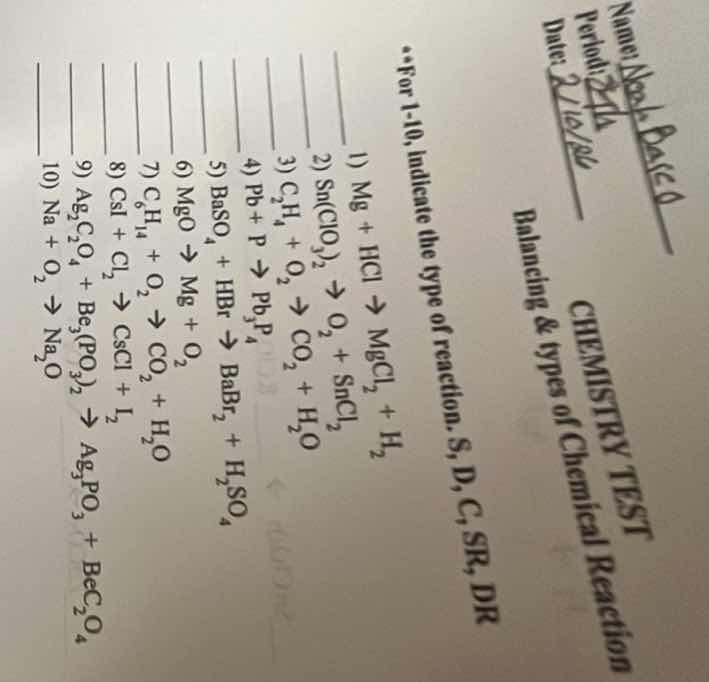 Name: Noah Basco
Period:
Date: 2/10/26
CHEMISTRY TEST
Balancing & types of Chemical Reaction
**For 1-10, indicate the type of reaction. S, D, C, SR, DR
1) Mg + HCl → MgCl₂ + H₂
2) Sn(ClO₃)₂ → O₂ + SnCl₂
3) C₂H₄ + O₂ → CO₂ + H₂O
4) Pb + P → Pb₃P₄
5) BaSO₄ + HBr → BaBr₂ + H₂SO₄
6) MgO → Mg + O₂
7) C₆H₁₄ + O₂ → CO₂ + H₂O
8) CsI + Cl₂ → CsCl + I₂
9) Ag₂C₂O₄ + Be₃(PO₃)₂ → Ag₃PO₃ + BeC₂O₄
10) Na + O₂ → Na₂O